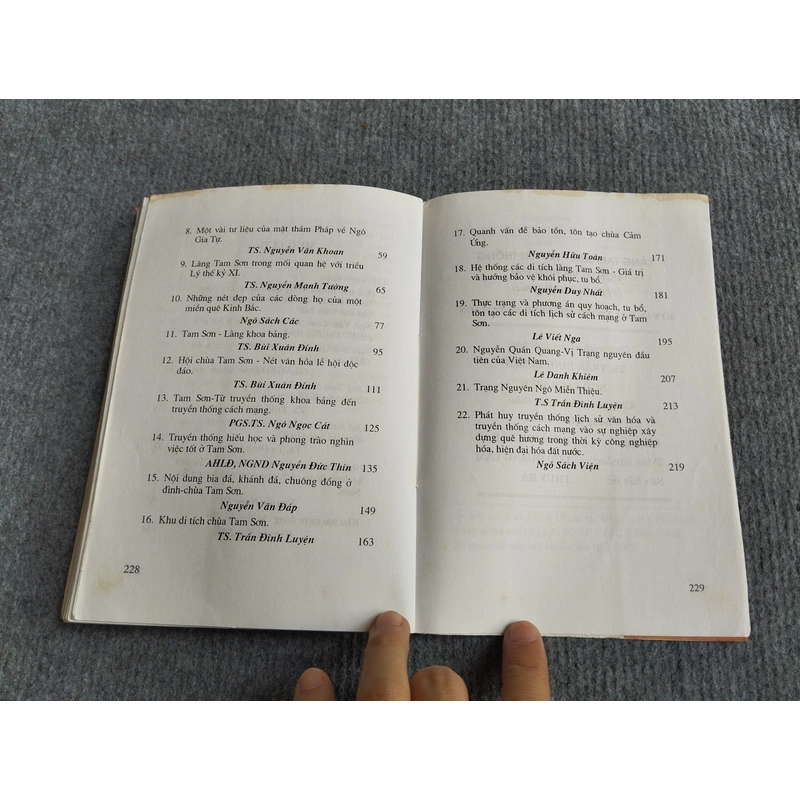 8. Một vài tư liệu của mật thám Pháp về Ngô
Gia Tự.
TS. Nguyễn Văn Khoan 59
9. Làng Tam Sơn trong mối quan hệ với triều
Lý thế kỷ XI.
TS. Nguyễn Mạnh Tường 65
10. Những nét đẹp của các dòng họ của một
miền quê Kinh Bắc.
Ngô Sách Các 77
11. Tam Sơn - Làng khoa bảng.
TS. Bùi Xuân Đính 95
12. Hội chùa Tam Sơn - Nét văn hóa lễ hội độc
đáo.
TS. Bùi Xuân Đính 111
13. Tam Sơn-Từ truyền thống khoa bảng đến
truyền thống cách mạng.
PGS.TS. Ngô Ngọc Cát 125
14. Truyền thống hiếu học và phong trào nghìn
việc tốt ở Tam Sơn.
AHLĐ, NGND Nguyễn Đức Thìn 135
15. Nội dung bia đá, khánh đá, chuông đồng ở
đình-chùa Tam Sơn.
Nguyễn Văn Đáp 149
16. Khu di tích chùa Tam Sơn.
TS. Trần Đình Luyện 163
228
17. Quanh vấn đề bảo tồn, tôn tạo chùa Cảm
Ứng.
Nguyễn Hữu Toàn 171
18. Hệ thống các di tích làng Tam Sơn - Giá trị
và hướng bảo vệ khôi phục, tu bổ.
Nguyễn Duy Nhất 181
19. Thực trạng và phương án quy hoạch, tu bổ,
tôn tạo các di tích lịch sử cách mạng ở Tam
Sơn.
Lê Viết Nga 195
20. Nguyễn Quán Quang-Vị Trạng nguyên đầu
tiên của Việt Nam.
Lê Danh Khiêm 207
21. Trạng Nguyên Ngô Miễn Thiệu.
T.S Trần Đình Luyện 213
22. Phát huy truyền thống lịch sử văn hóa và
truyền thống cách mạng vào sự nghiệp xây
dựng quê hương trong thời kỳ công nghiệp
hóa, hiện đại hóa đất nước.
Ngô Sách Viện 219
229